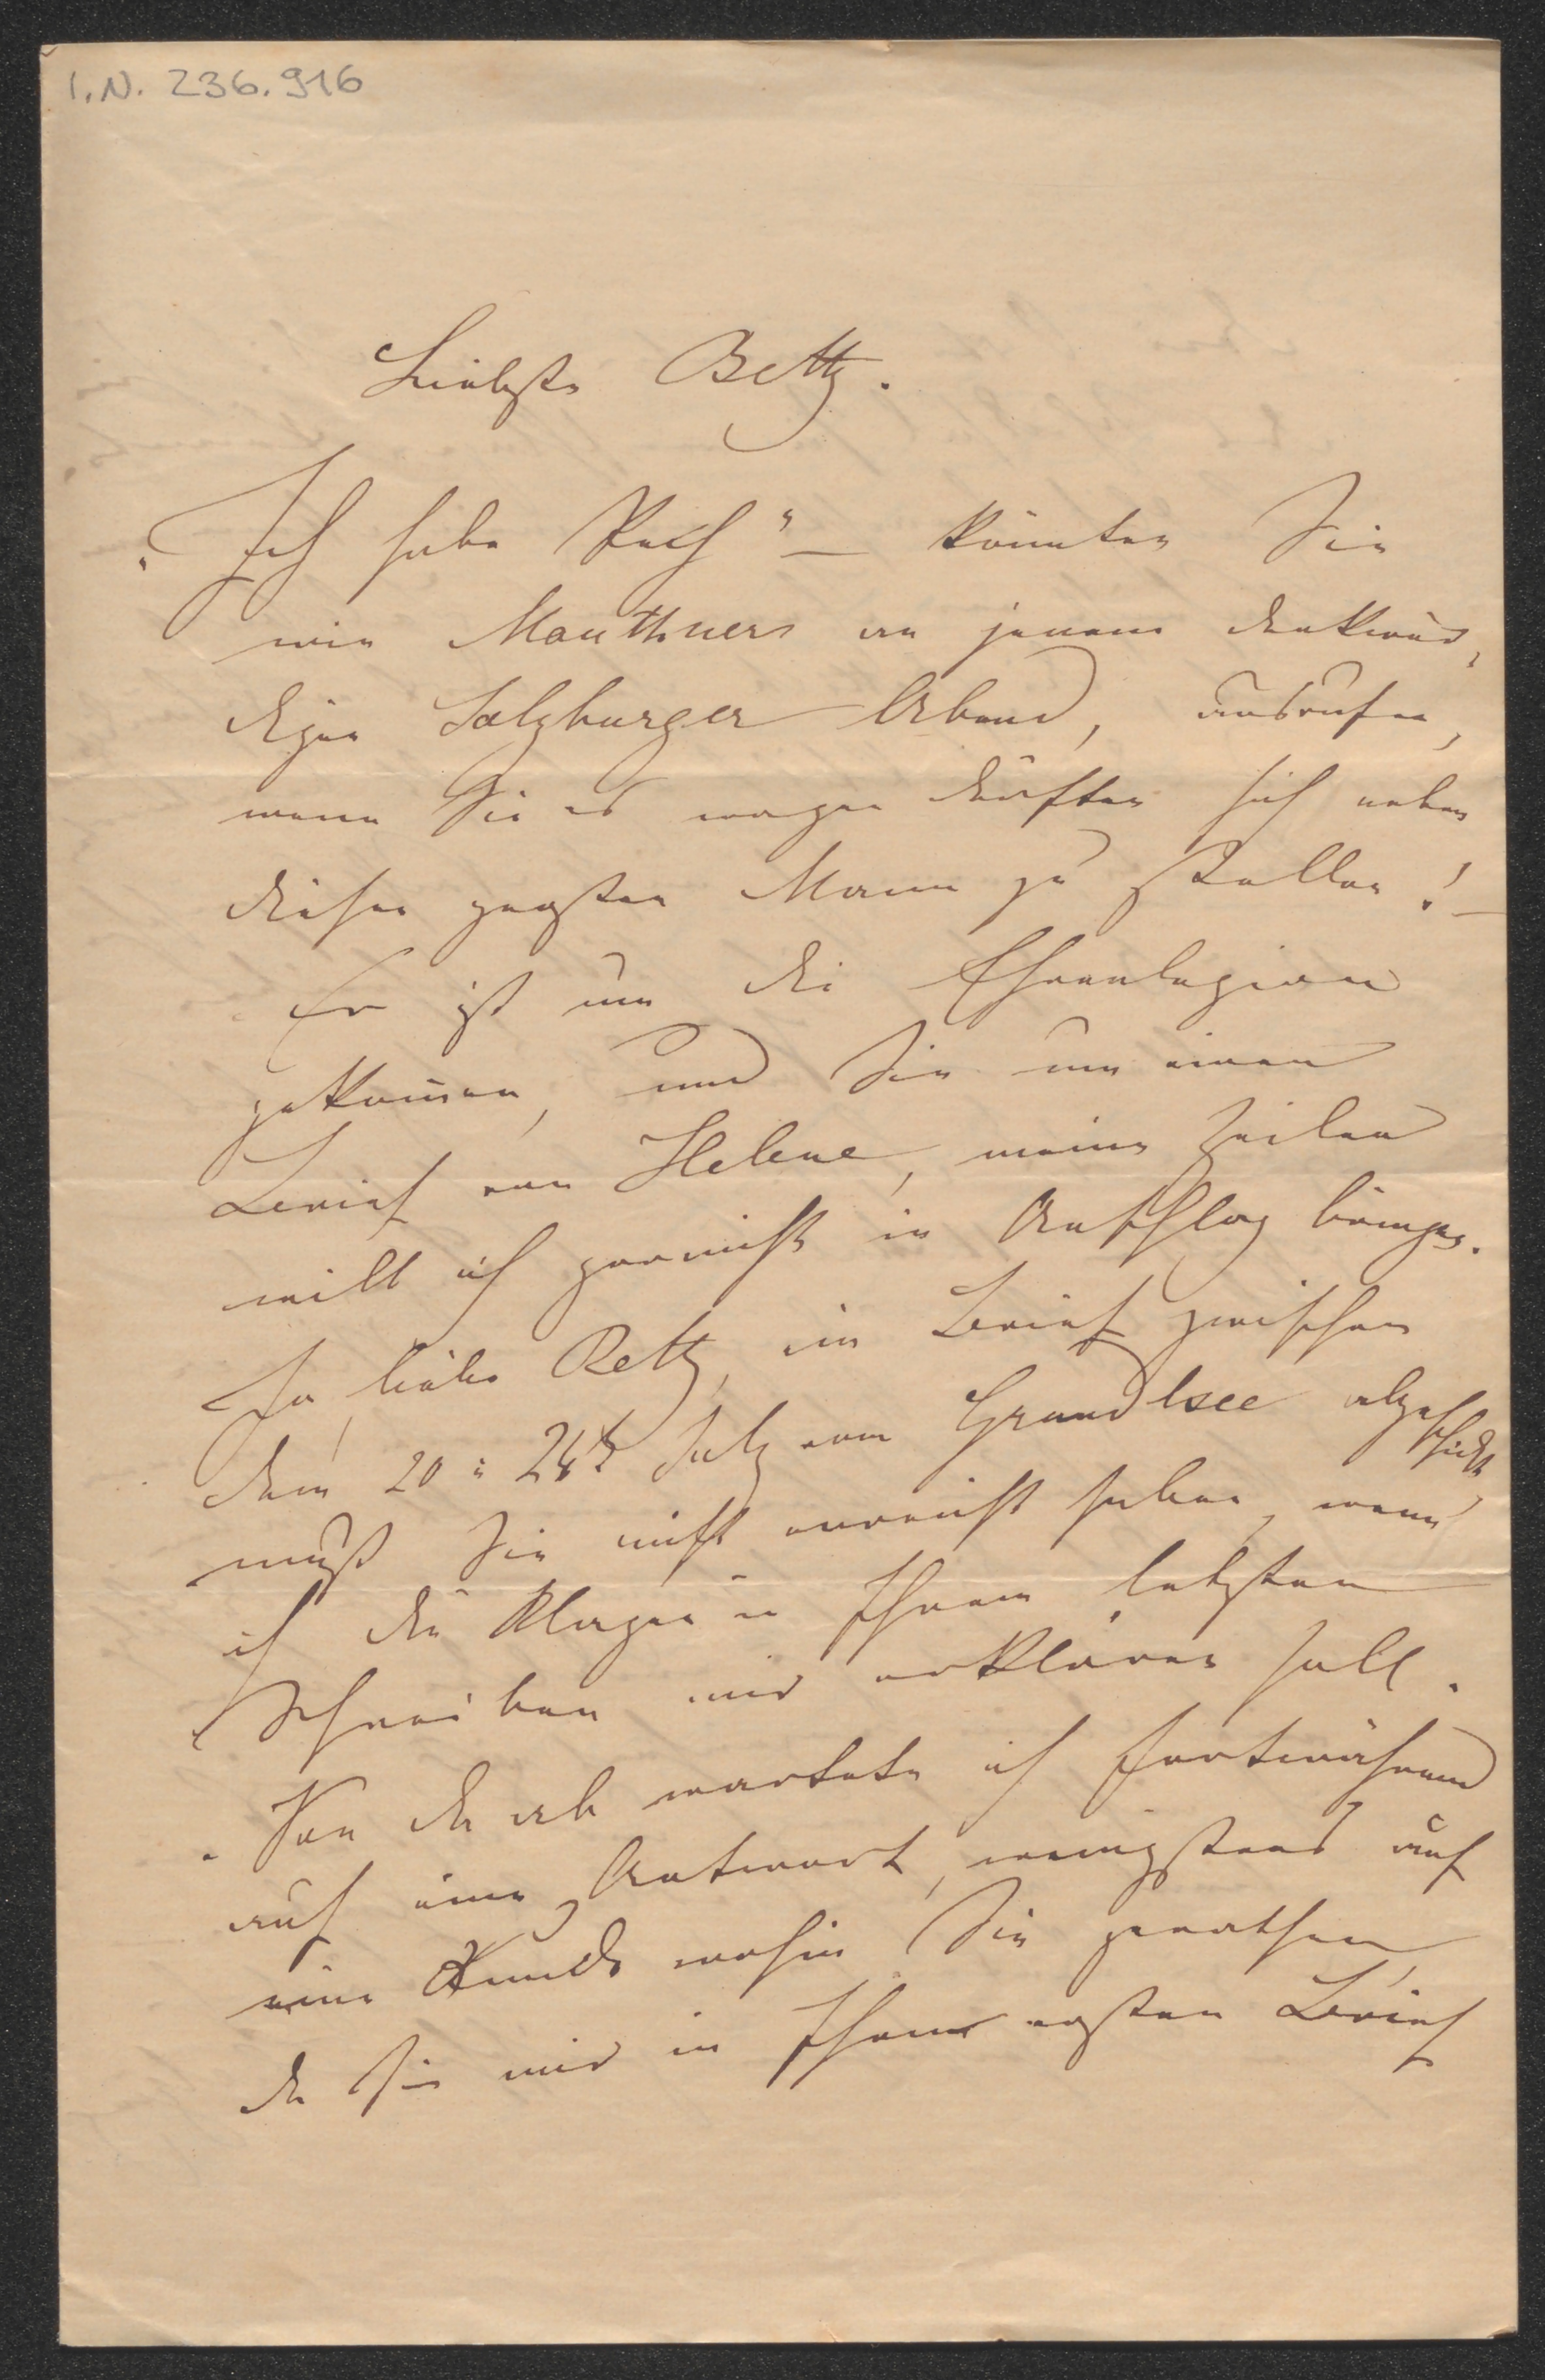 I.N. 236.916
Liebste Betty.
„Ich habe Pech" – könnten Sie
wie Mauthner an jenem denkwür-
digen Salzburger Abend, ausrufen,
wenn Sie es wagen dürften sich neben
diesen großen Mann zu stellen! –
Er ist um die Ehrenlegion
gekommen, und Sie um einen
Brief von Helene, meine Zeilen
will ich garnicht in Anschlag bringen.
Ja, liebe Betty, ein Brief zwischen
dem 20 u 24t July vom Grundlsee abgeschickt
muß Sie nicht erreicht haben, wenn
ich die Klagen in Ihrem letzten
Schreiben mir erklären soll.
Von da ab wartete ich fortwährend
auf eine Antwort, wenigstens auf
eine Kunde wohin Sie gerathen,
da Sie mir in Ihrem ersten Brief